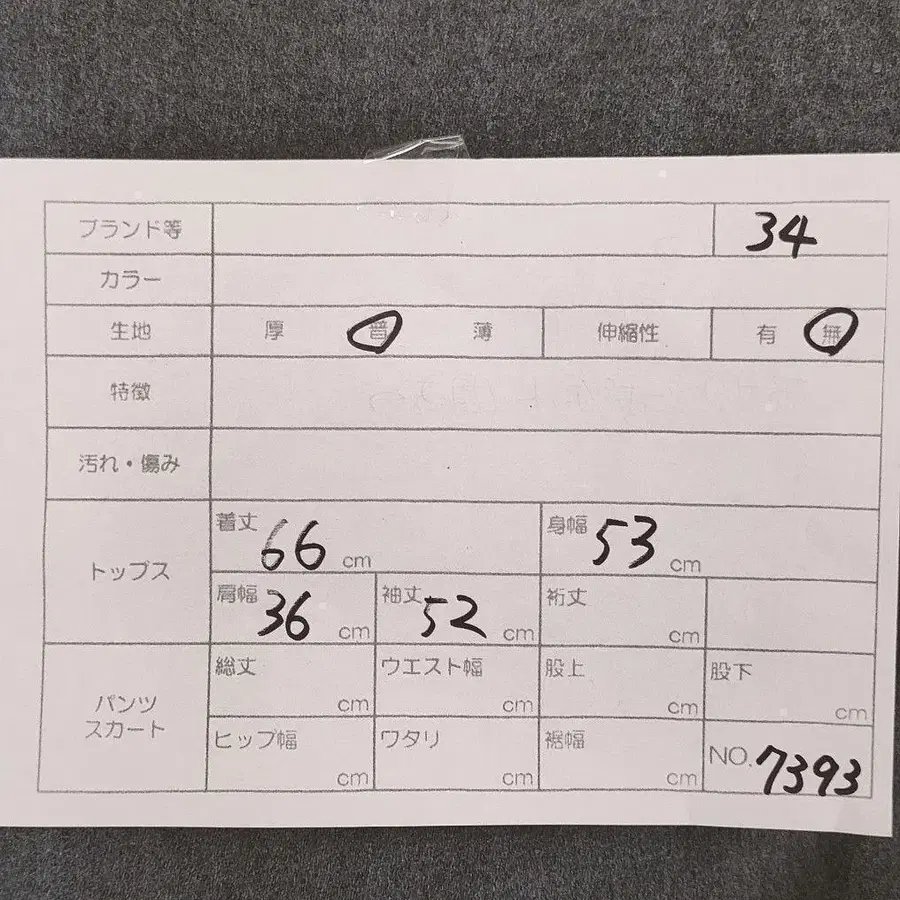 ブランド等 34
カラー
生地 厚 普 薄 伸縮性 有 無
特徴
汚れ・傷み
トップス
着丈 66 cm 身幅 53 cm
肩幅 36 cm 袖丈 52 cm 裄丈 cm
パンツ
スカート
総丈 cm ウエスト幅 cm 股上 cm 股下 cm
ヒップ幅 cm ワタリ cm 裾幅 cm NO. 7393